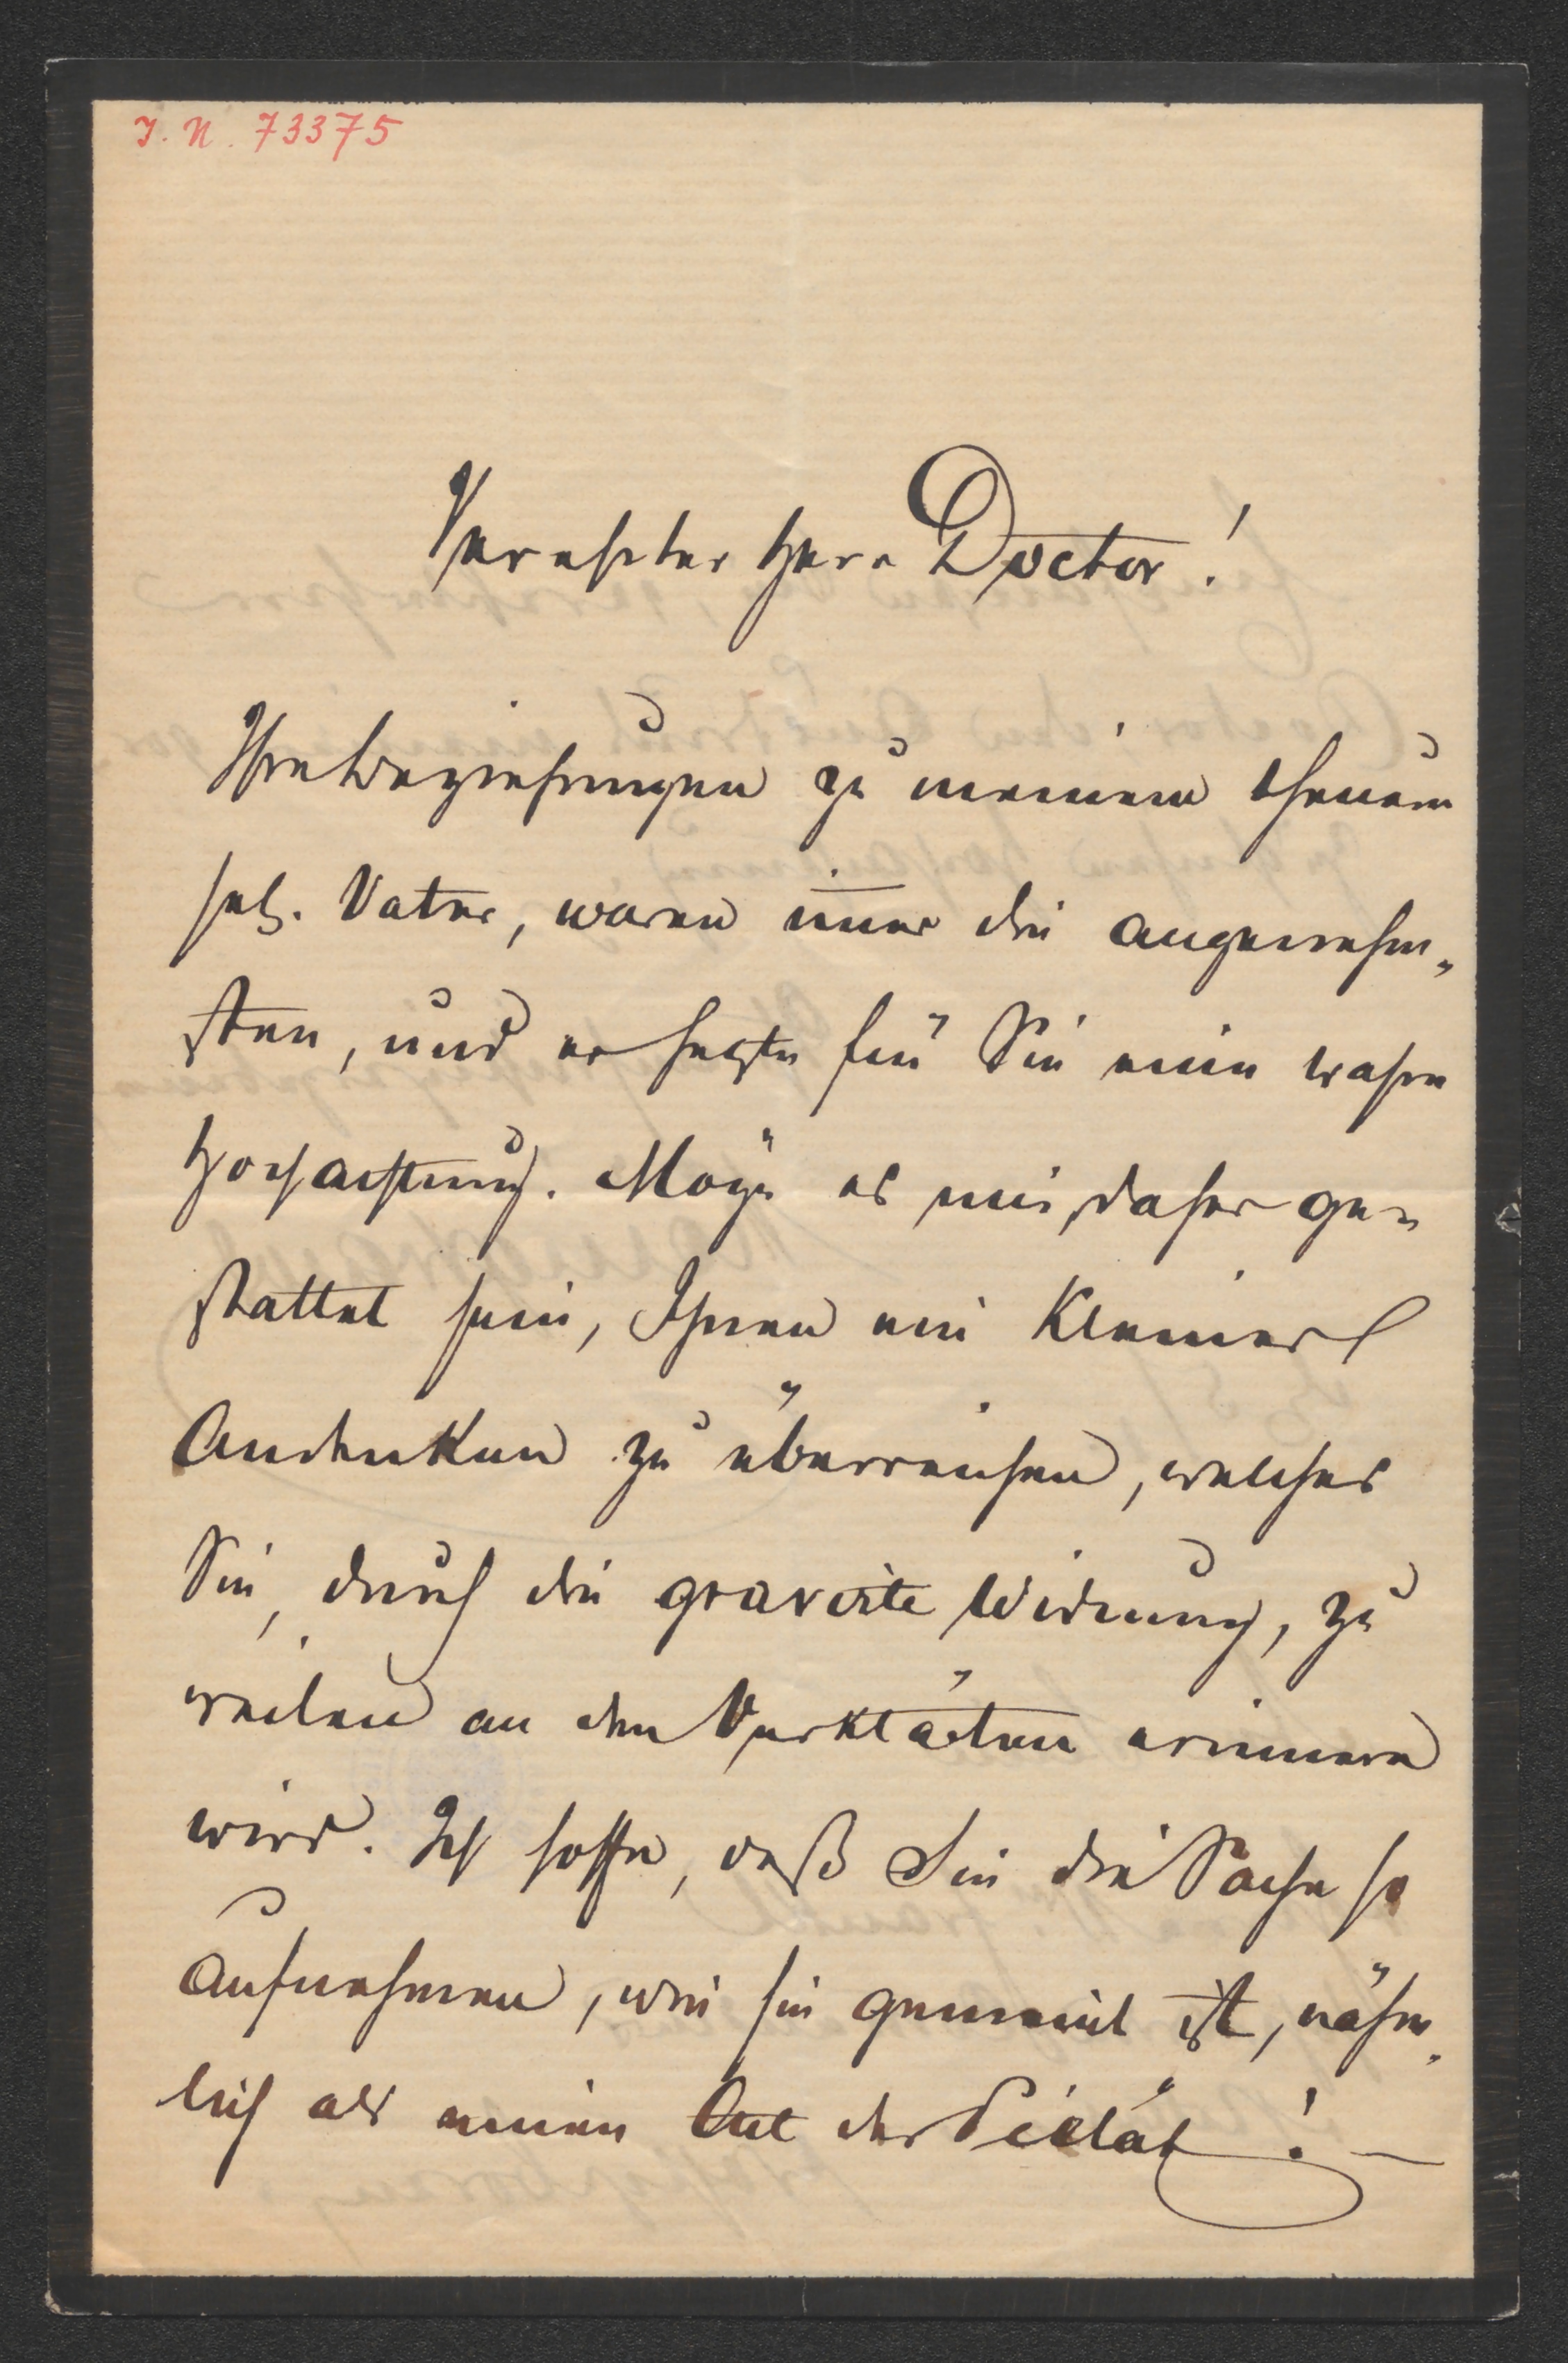 J. N. 73375
Verehrter Herr Doctor!
Ihre Beziehungen zu meinem theuern
sel. Vater, waren im̅er die angenehm„
sten, und er hegte für Sie eine wahre
Hochachtung. Möge es mir, daher ge=
stattet sein, Ihnen ein kleines
Andenken zu überreichen, welches
Sie, durch die gravirte Widmung, zu
weilen an den Verklärten erinnern
wird. Ich hoffe, daß Sie die Sache so
aufnehmen, wie sie gemeint ist, nähm„
lich als einen Act der Pietät! —